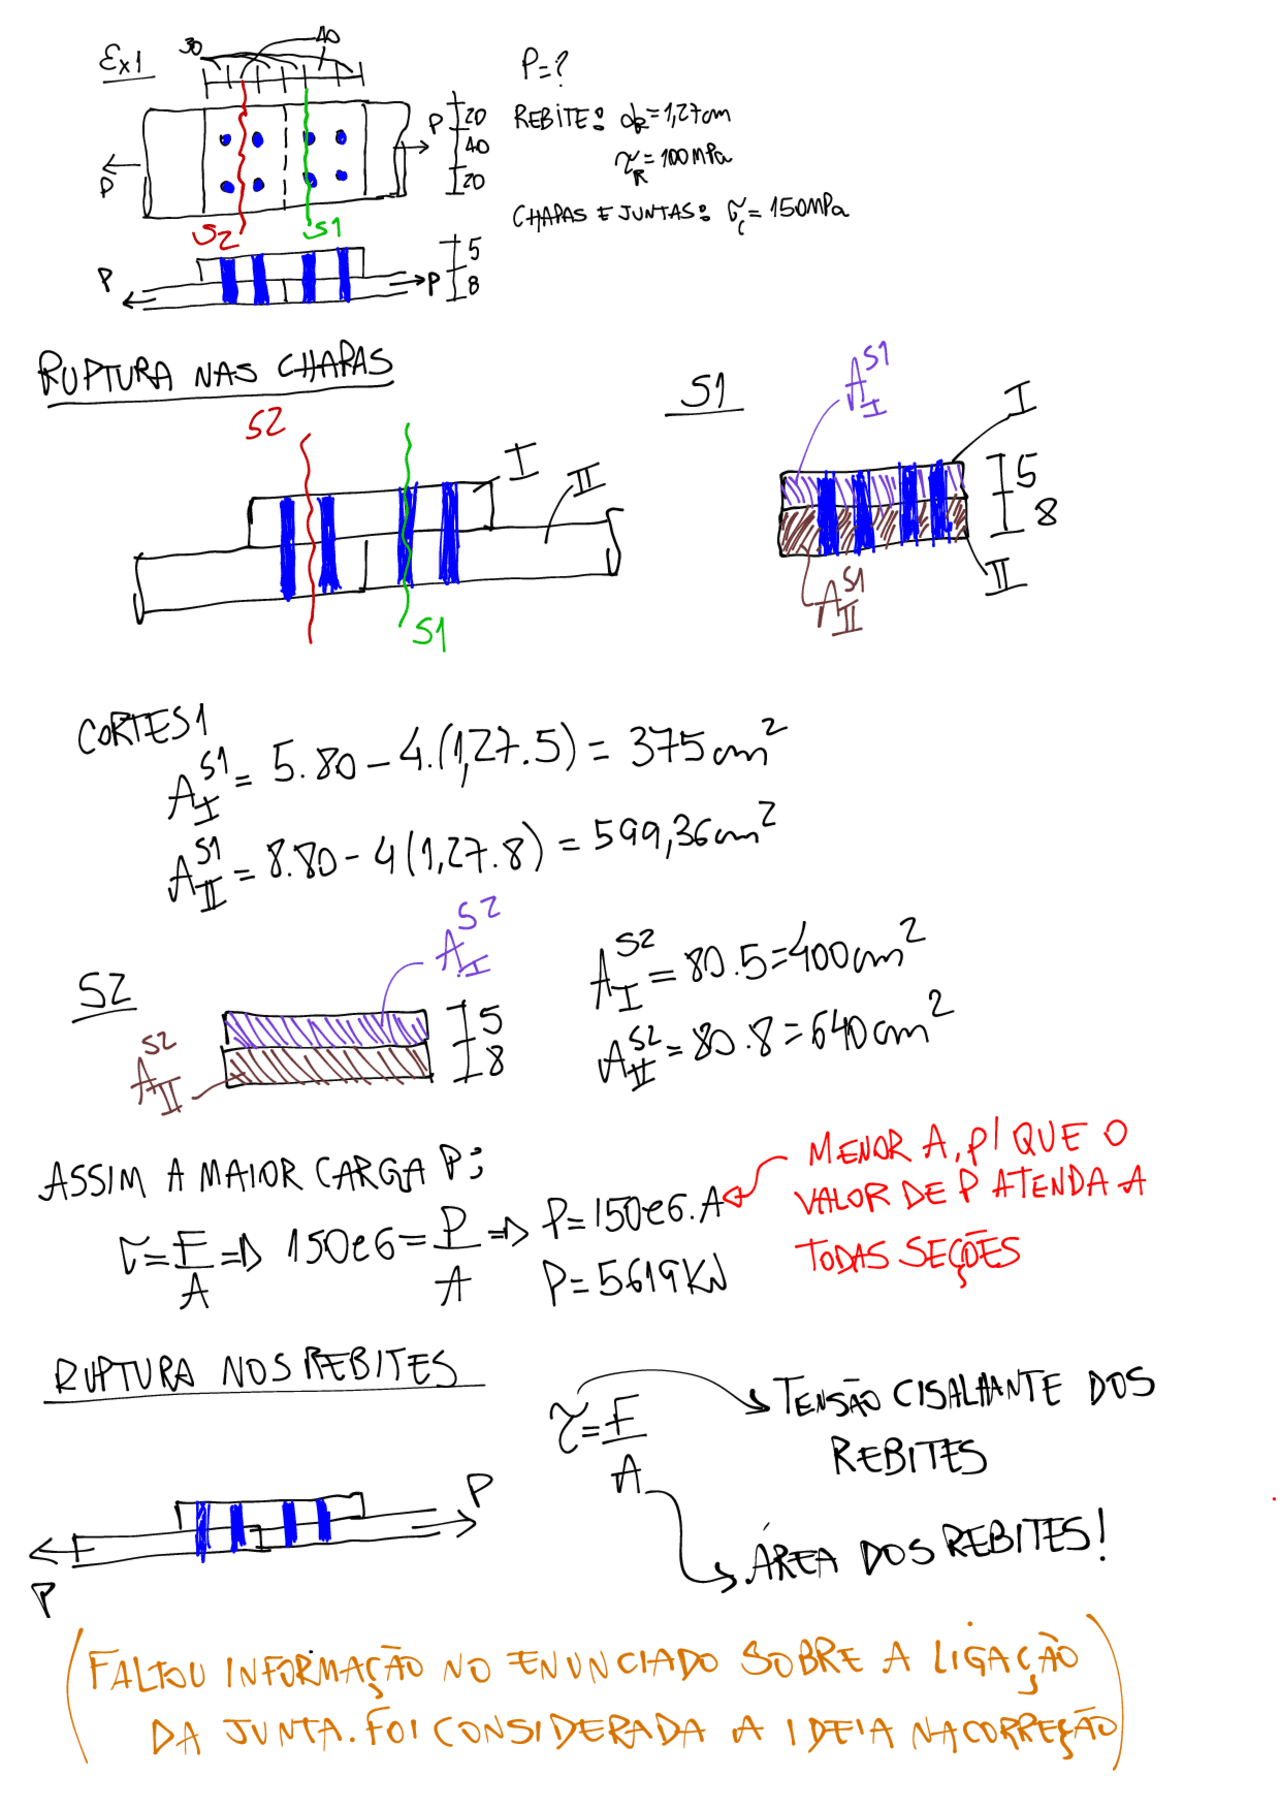 Ex1
30
40
P=?
REBITE: dR=1,27cm
τR=100MPa
CHAPAS E JUNTAS: σc=150MPa
P
P
20
40
20
S2
S1
P
P
5
8
RUPTURA NAS CHAPAS
S2
I
II
S1
S1
A_I^S1
I
5
8
II
A_II^S1
CORTES1
A_I^S1 = 5.80 - 4.(1,27.5) = 375cm²
A_II^S1 = 8.80 - 4(1,27.8) = 599,36cm²
S2
A_I^S2
5
8
A_II^S2
A_I^S2 = 80.5=400cm²
A_II^S2 = 80.8=640cm²
ASSIM A MAIOR CARGA P:
σ=F/A ⇒ 150e6=P/A ⇒ P=150e6.A
P=5619KN
MENOR A, P/ QUE O
VALOR DE P ATENDA A
TODAS SEÇÕES
RUPTURA NOS REBITES
τ=F/A
TENSÃO CISALHANTE DOS
REBITES
ÁREA DOS REBITES!
P
P
(FALTOU INFORMAÇÃO NO ENUNCIADO SOBRE A LIGAÇÃO
DA JUNTA. FOI CONSIDERADA A IDEIA NA CORREÇÃO)